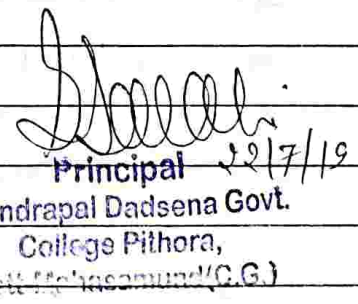 Principal 22/7/19
ndrapal Dadsena Govt.
College Pithora,
(C.G.)